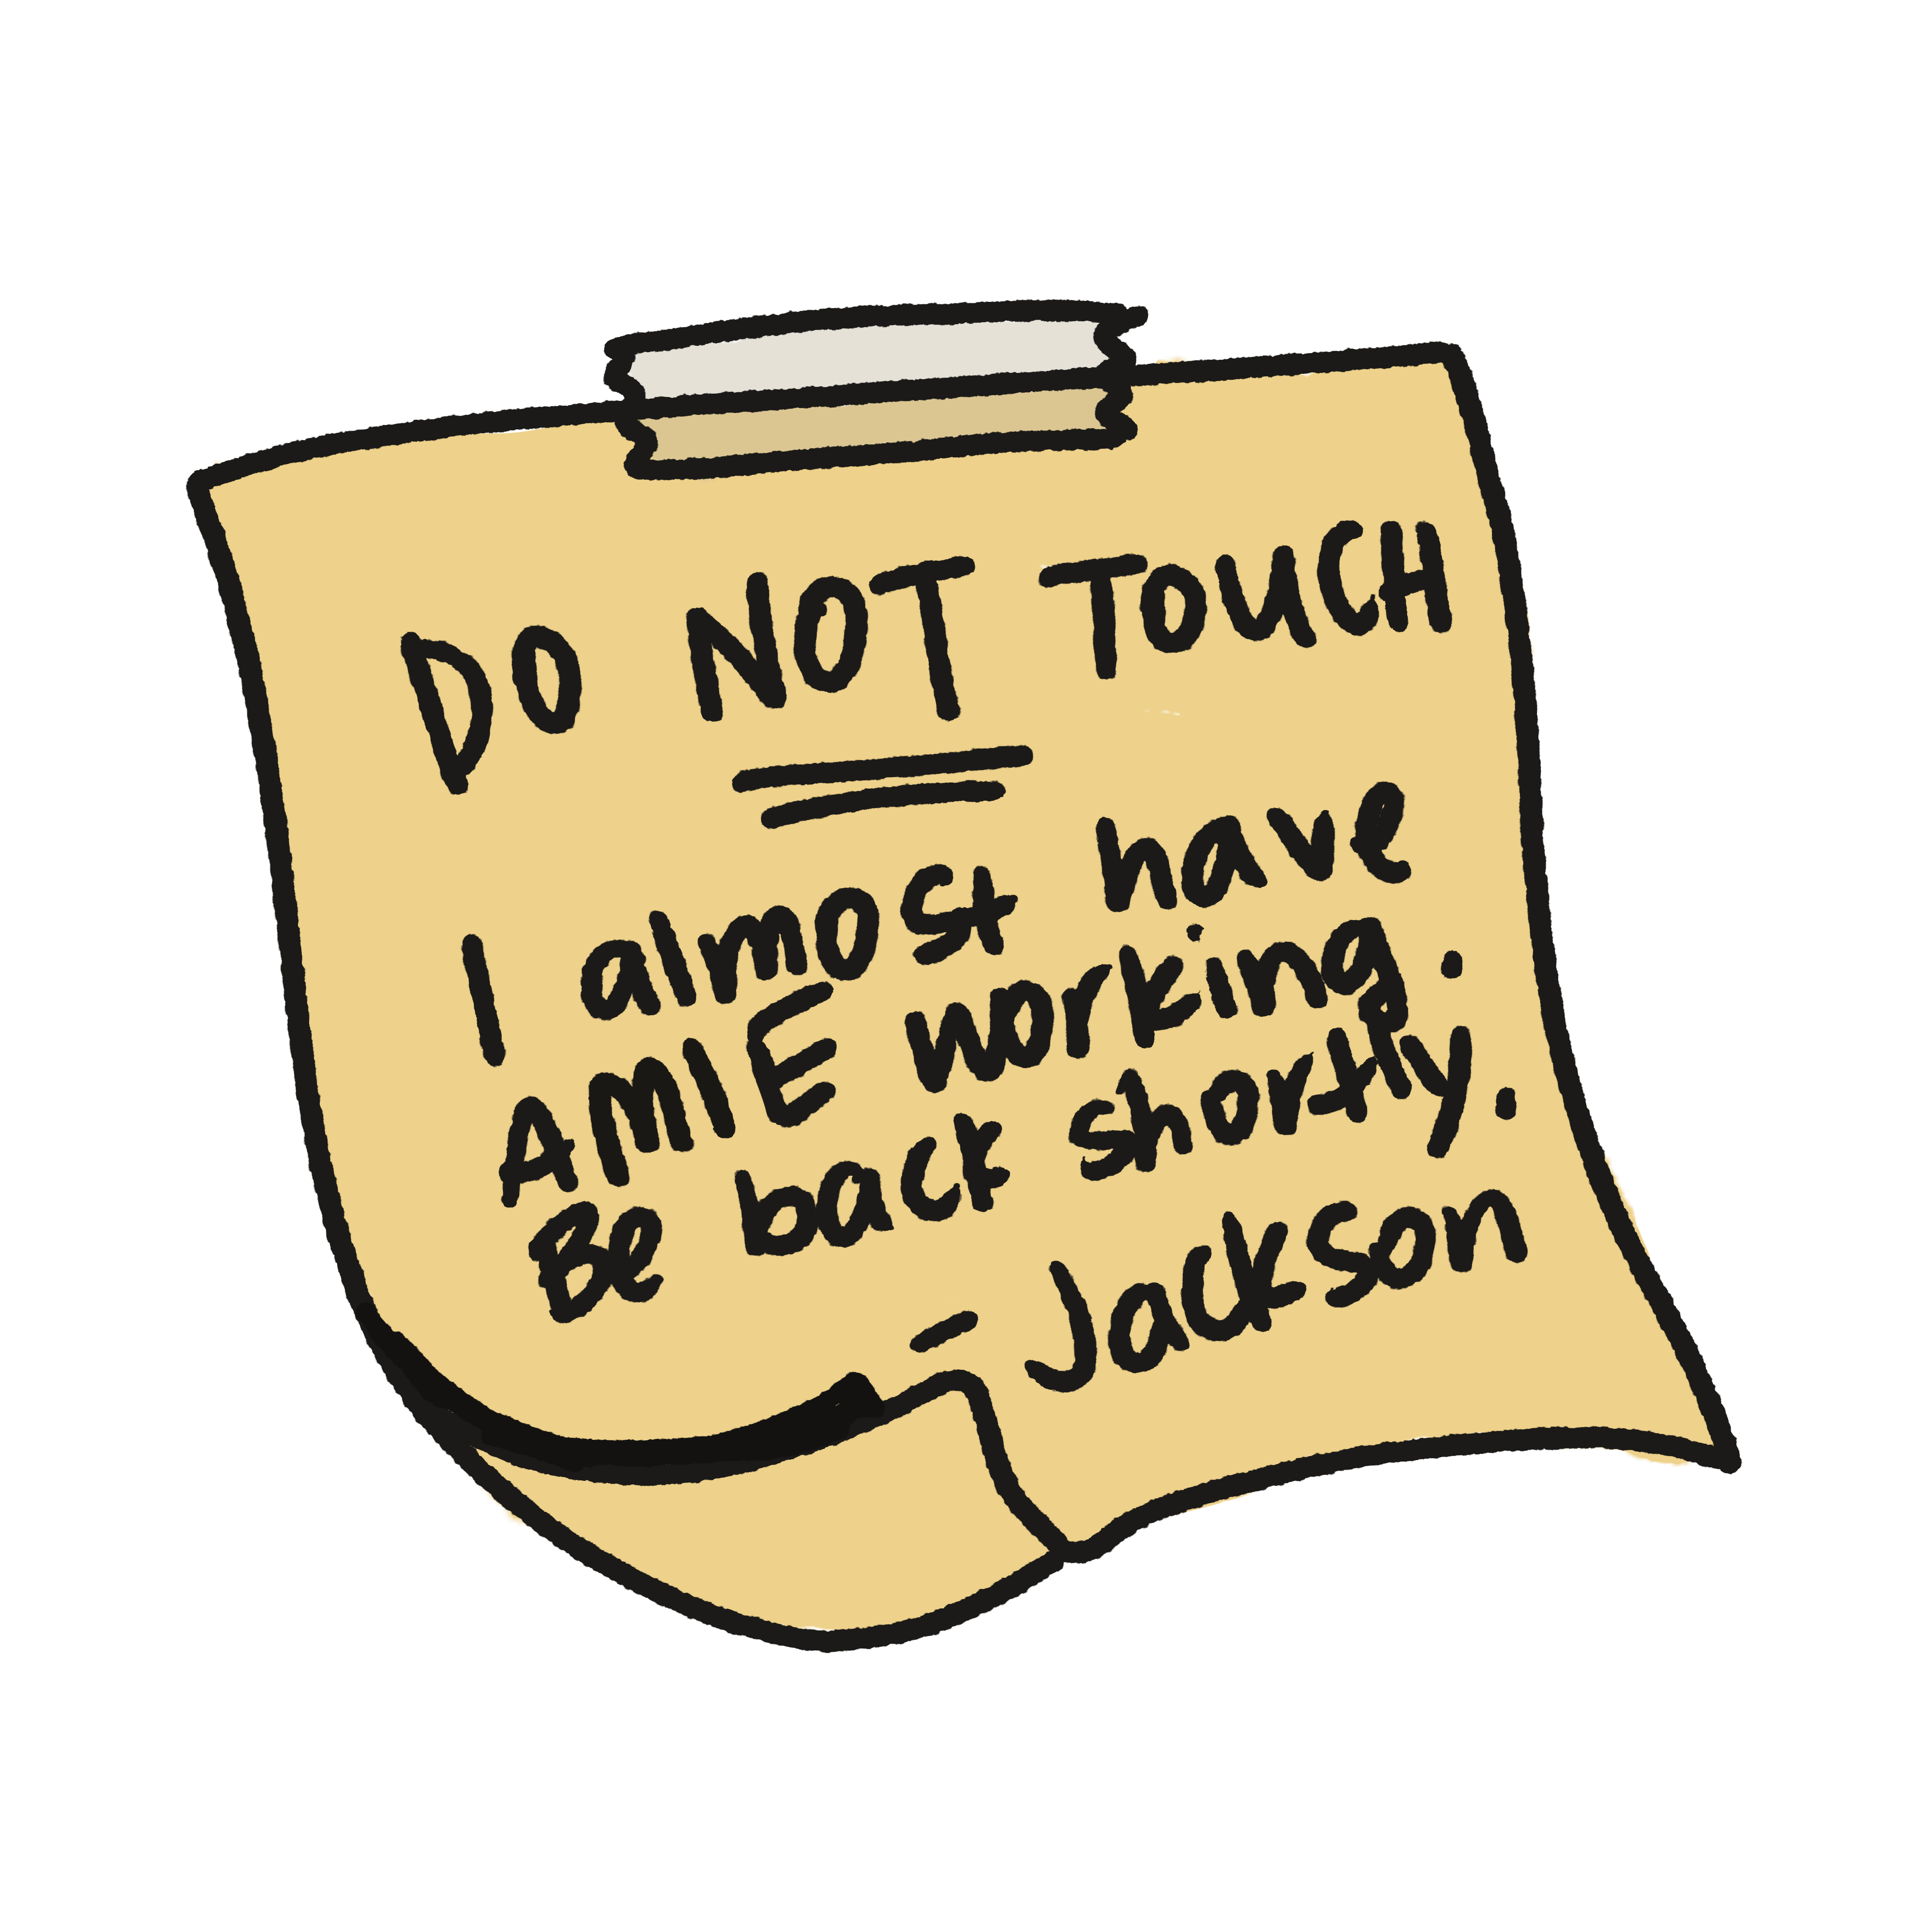 DO NOT TOUCH
I almost have
AMIE working.
Be back shortly.
- Jackson